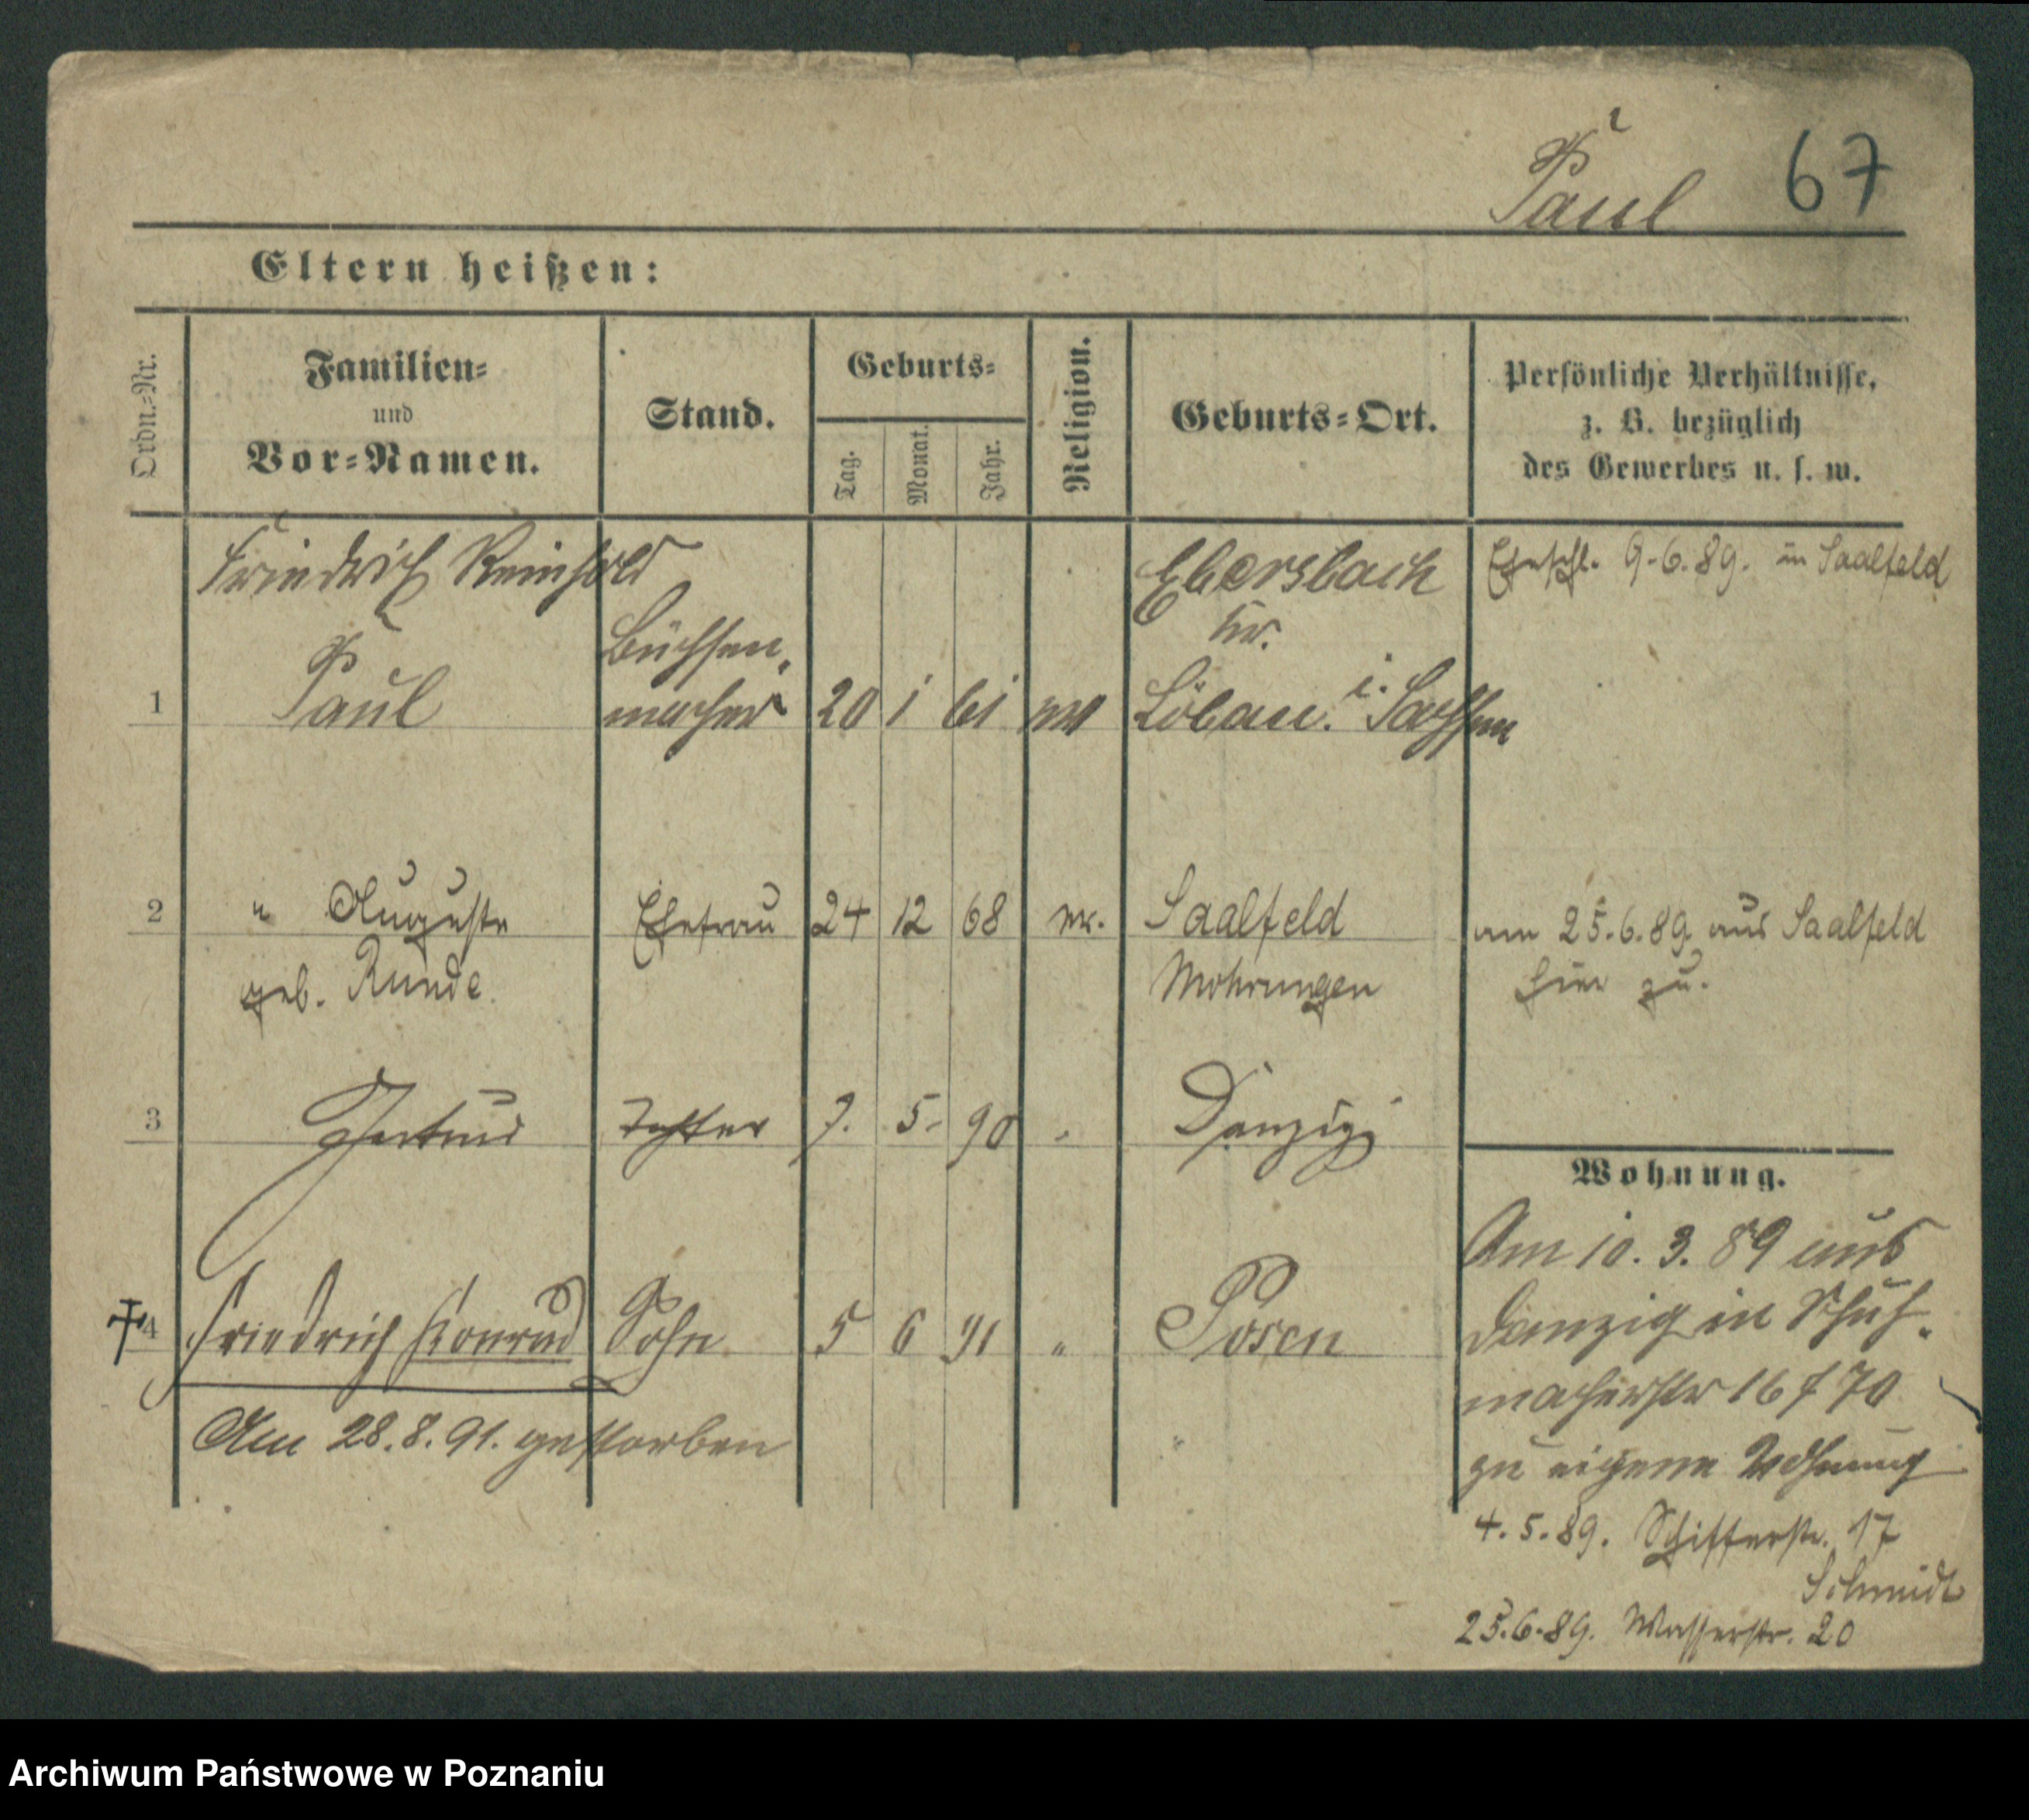 Paul 67
Eltern heißen:
Ordn.-Nr.
Familien-
und
Vor-Namen.
Stand.
Geburts-
Tag.
Monat.
Jahr.
Religion.
Geburts-Ort.
Persönliche Verhältnisse,
z. B. bezüglich
des Gewerbes u. s. w.
Friedrich Reinhold
Ebersbach
Eheschl. 9.6.89. in Saalfeld
Büchsen-
Kr.
1 Paul macher 20 1 61 Löbau i. Sachsen
2 " Auguste Ehefrau 24 12 68 ev. Saalfeld am 25.6.89 aus Saalfeld
geb. Runde. Mohrungen hier zu.
3 Gertrud Tochter 7. 5. 90 " Danzig
Wohnung.
Am 10. 3. 89 aus
†4 Friedrich Konrad Sohn 5 6 91 " Posen
Danzig in Schuh-
macherstr 16 f 70
Am 28.8.91. gestorben
zu eigene Wohnung
4.5.89. Schifferstr. 17
Schmidt
25.6.89. Wasserstr. 20
Archiwum Państwowe w Poznaniu